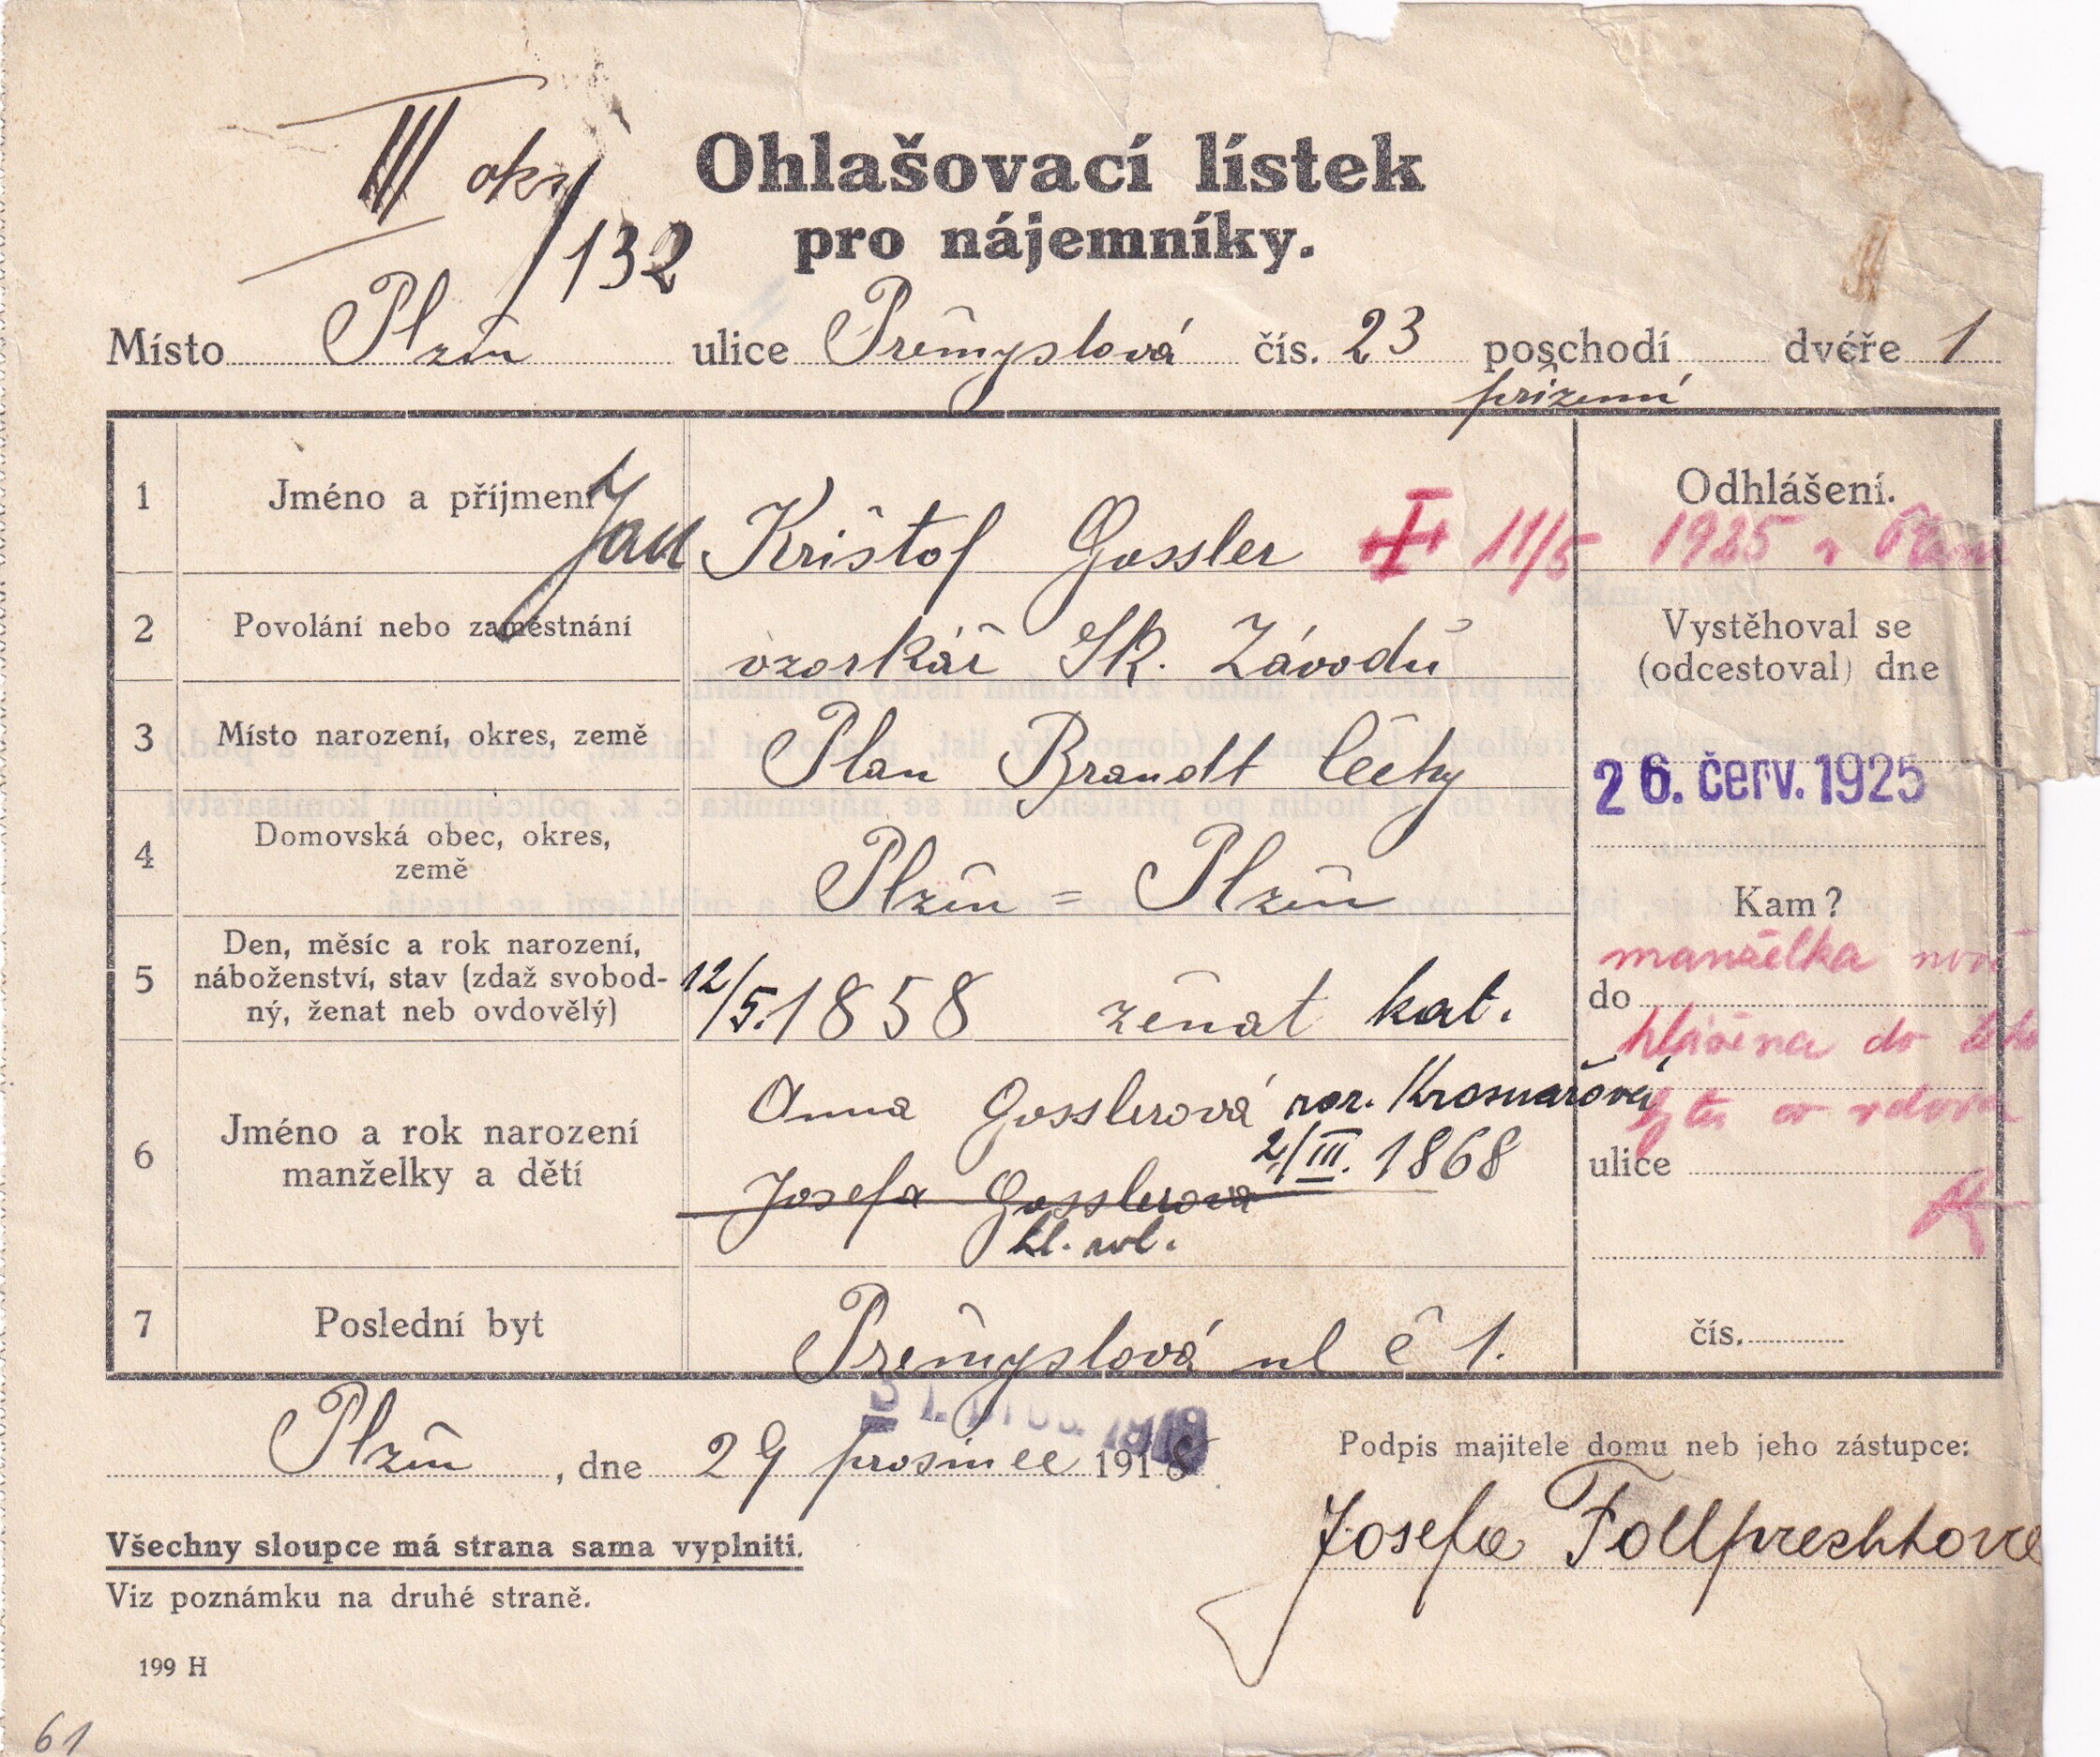 III okr/132
Ohlašovací lístek
pro nájemníky.
Místo Plzeň ulice Přemyslová čís. 23 poschodí přízemní dvéře 1
1 Jméno a příjmení Jan Krištof Gossler † 11/5 1925 v Plzni
Odhlášení.
2 Povolání nebo zaměstnání vzorkář Šk. Závodů
Vystěhoval se
(odcestoval) dne
3 Místo narození, okres, země Plan Brandt Čechy
26. červ. 1925
4 Domovská obec, okres,
země
Plzeň = Plzeň
Kam?
5 Den, měsíc a rok narození,
náboženství, stav (zdaž svobod-
ný, ženat neb ovdovělý)
12/5. 1858 ženat kat.
manželka nově
do
hlášena do
6 Jméno a rok narození
manželky a dětí
Anna Gosslerová nar.
2/III. 1868
Josefa Gosslerová
hl. zvl.
vdova
ulice
7 Poslední byt Přemyslová ul č 1.
čís.
Plzeň, dne 29 prosince 1918
Podpis majitele domu neb jeho zástupce:
Josefa
Všechny sloupce má strana sama vyplniti.
Viz poznámku na druhé straně.
199 H
61